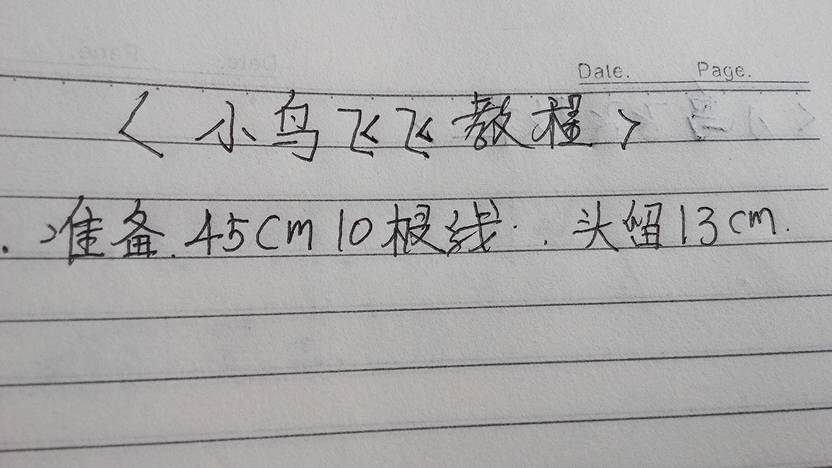 Date. Page.
〈小鸟飞飞教程〉
.准备.45cm 10根线..头留13cm.